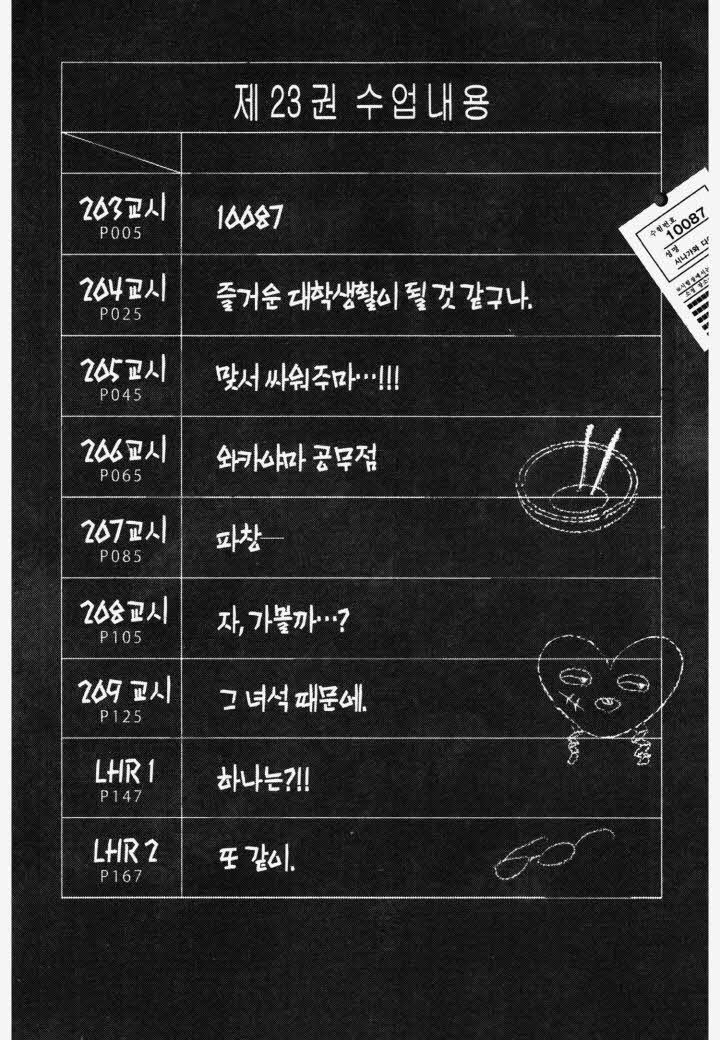 제 23 권 수업 내용
203교시
P005
10087
204교시
P025
즐거운 대학생활이 될 것 같구나.
205교시
P045
맞서 싸워주마…!!!
206교시
P065
와카야마 공무점
207교시
P085
파창—
208교시
P105
자, 가볼까…?
209 교시
P125
그 녀석 때문에.
LHR 1
P147
하나는?!!
LHR 2
P167
또 같이.
수험번호
10087
성명
시나가와 다